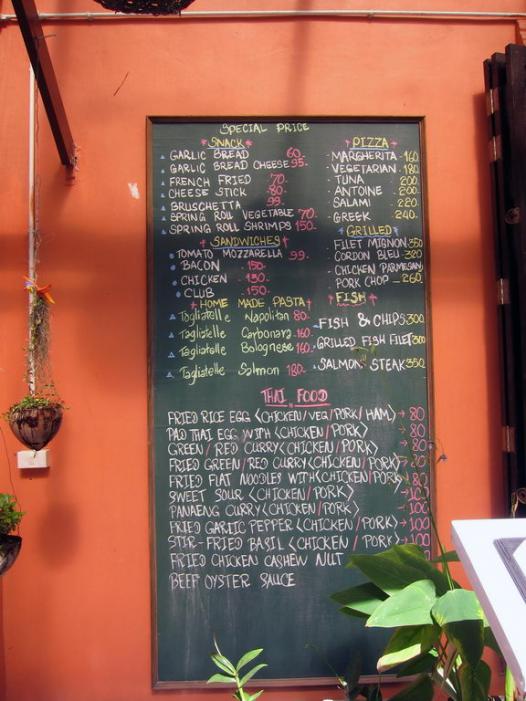 SPECIAL PRICE
SNACK
GARLIC BREAD 60.-
GARLIC BREAD CHEESE 95.-
FRENCH FRIED 70.-
CHEESE STICK 80.-
BRUSCHETTA 99.-
SPRING ROLL VEGETABLE 70.-
SPRING ROLL SHRIMPS 150.-
SANDWICHES
TOMATO MOZZARELLA 99.-
BACON 150.-
CHICKEN 130.-
CLUB 150.-
HOME MADE PASTA
Tagliatelle Napolitan 80.-
Tagliatelle Carbonara 160.-
Tagliatelle Bolognese 160.-
Tagliatelle Salmon 180.-
PIZZA
MARGHERITA - 160
VEGETARIAN - 180
TUNA - 200
ANTOINE - 200
SALAMI - 220
GREEK - 240.-
GRILLED
FILET MIGNON 350
CORDON BLEU 320
CHICKEN PARMESAN
PORK CHOP - 260
FISH
FISH & CHIPS 300
GRILLED FISH FILET 300
SALMON STEAK 350
THAI FOOD
FRIED RICE EGG (CHICKEN/VEG/PORK/HAM) → 80
PAD THAI EGG WITH (CHICKEN/PORK) → 80
GREEN / RED CURRY (CHICKEN/PORK) → 80
FRIED GREEN/RED CURRY (CHICKEN/PORK)
FRIED FLAT NOODLES WITH (CHICKEN/PORK)
SWEET SOUR (CHICKEN/PORK)
PANAENG CURRY (CHICKEN/PORK) → 100
FRIED GARLIC PEPPER (CHICKEN/PORK) → 100
STIR-FRIED BASIL (CHICKEN / PORK) → 100
FRIED CHICKEN CASHEW NUT
BEEF OYSTER SAUCE